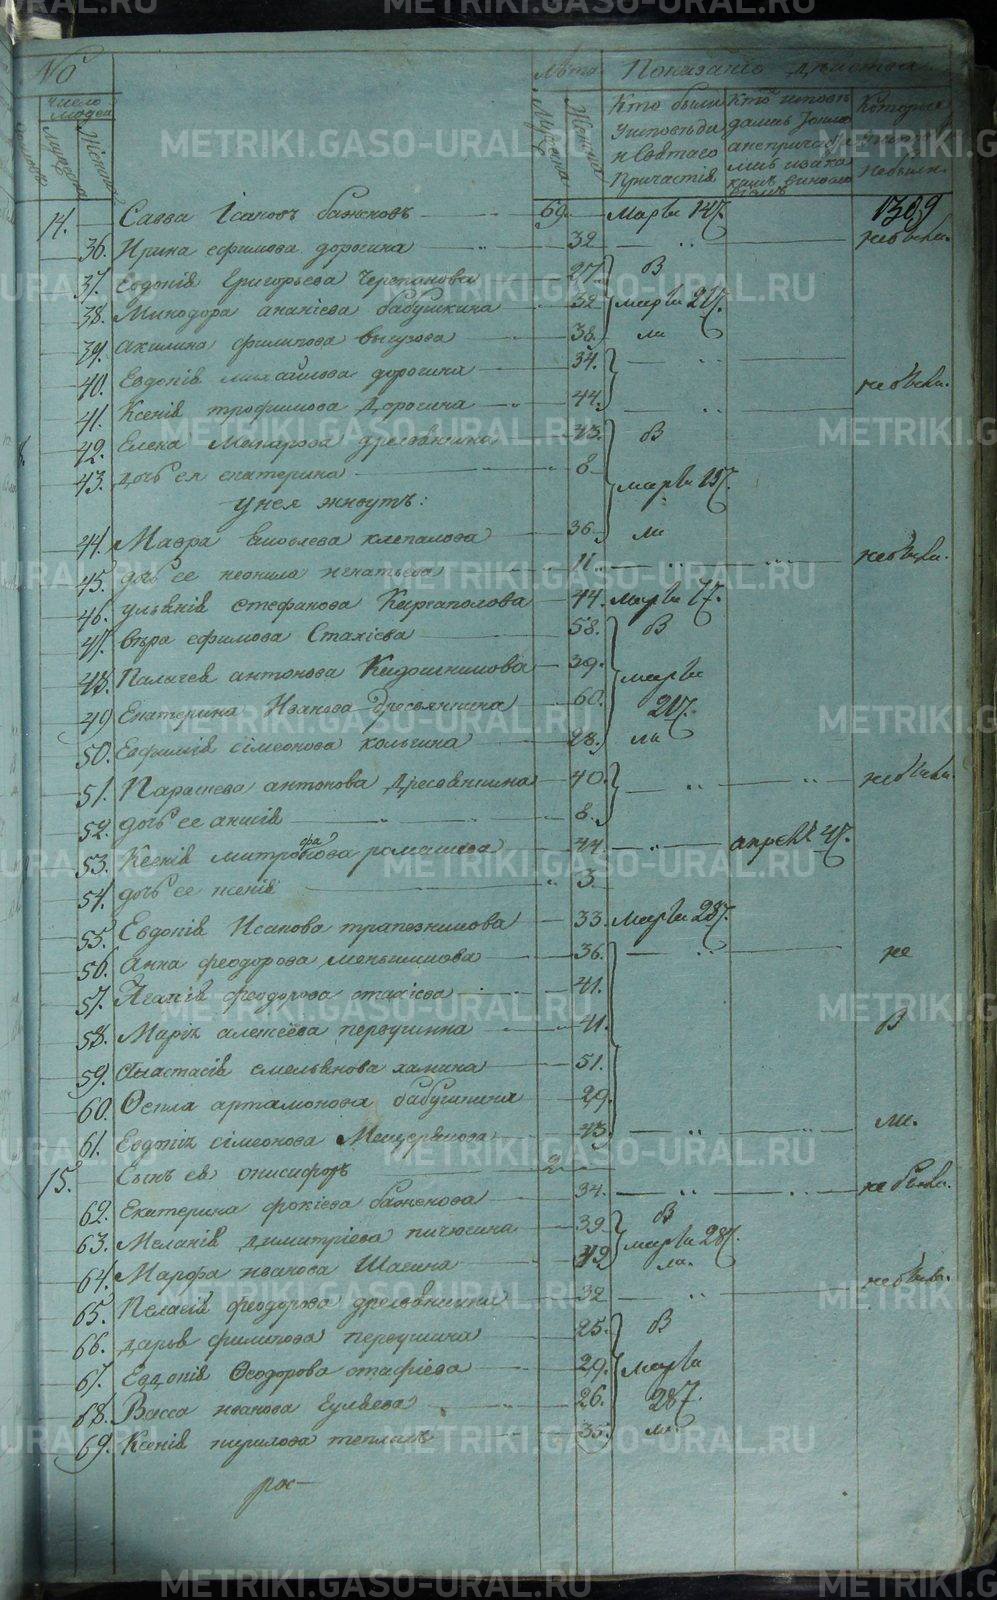 METRIKI.GASO-URAL.RU
№
Число людей
Мужска Женска
Лѣта
Мужска Женска
Показаніе дѣйства
Кто были у исповѣди и Святаго Причастія
Которые не были
1309
14. Савва Ісаковъ баженовъ 69. Марта 14г.
36. Ирина ефимова дорогина 32 не была.
37. Евдокія Григорьева Черепанова 27. В
38. Минодора ананіева бабушкина 32 марта 21г.
39. акилина филипова выгузова 38. ли
40. Евдокія михаилова дорогина 34.
41. Ксенія трофимова Дорогина 44. не были.
42. Елена Макарова дресвянкина 43. В
43. дочь ея екатерина 8 марта 15г.
у нея живутъ:
44. Мавра Яковлева клепалова 36. ли
45. дочь ее неонила игнатьева 11 не были.
46. ульянія стефанова Каргаполова 44. марта 7г.
47. вѣра ефимова Стахіева 58. В
48. Палагея антонова Кидошникова 39. марта
49 Екатерина Иванова Дресвянкина 60. 21г.
50. Евфимія сімеонова кольчина 28. ли
51. Параскева антонова Дресвянкина 40. не были.
52. дочь ее анисія 8.
53. Ксенія митрофанова ромашева 44 апреля 4г.
54. дочь ее ксенія 3
55. Евдокія Исакова трапезникова 33. Марта 28г.
56. Анна феодорова меньшикова 36. не
57. Агапія феодорова стахіева 41.
58. Марія алексѣева первушина 41. В
59. Анастасія емельянова ханина 51.
60. Фекла артамонова бабушкина 29.
61. Евдокія сімеонова Мещерякова 43. ли.
15. Сынъ ея онисифоръ 2
62. Екатерина фокіева баженова 34. не была.
63. Меланія димитріева пичюгина 39. В марта 28г.
64. Марфа иванова Шагина 49 ли.
65. Пелагія феодорова дресвянкина 32 не была.
66. дарья филипова первушина 25. В
67. Евдокія Феодорова стафіева 29. марта
68. Васса иванова Гуляева 26. 28г.
69. Ксенія кирилова теплыхъ 35. ли.
рос